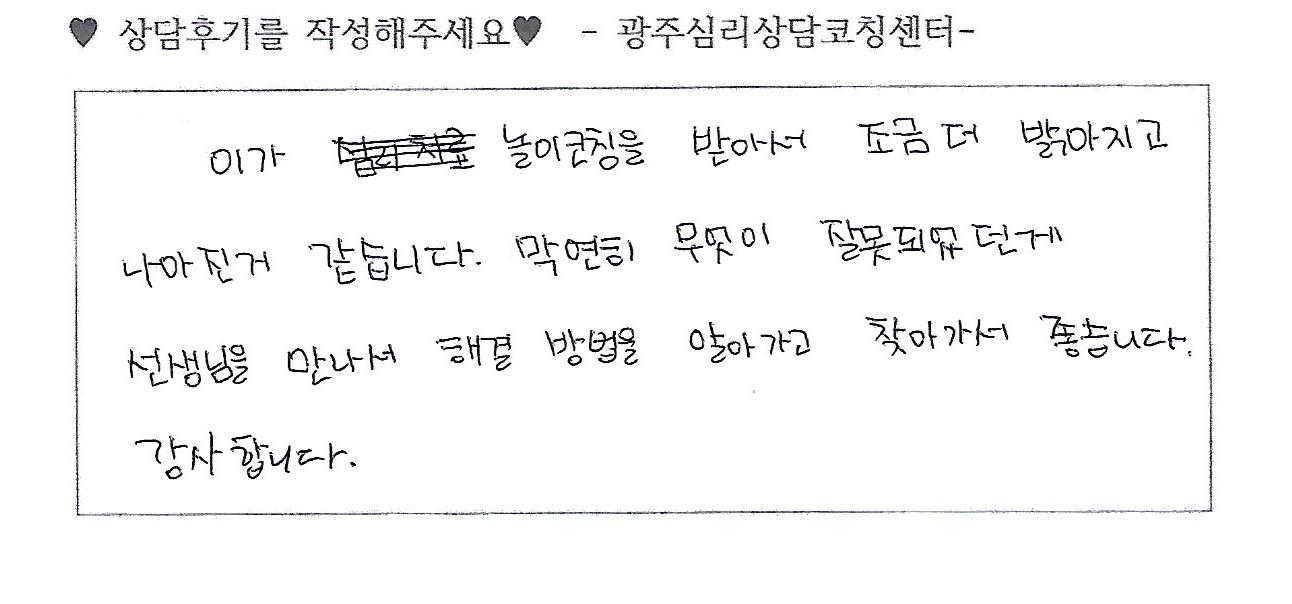 ♥ 상담후기를 작성해주세요♥ - 광주심리상담코칭센터-
이가 심리치료 놀이코칭을 받아서 조금 더 밝아지고
나아진거 같습니다. 막연히 무엇이 잘못되었던게
선생님을 만나서 해결 방법을 알아가고 찾아가서 좋습니다.
감사합니다.